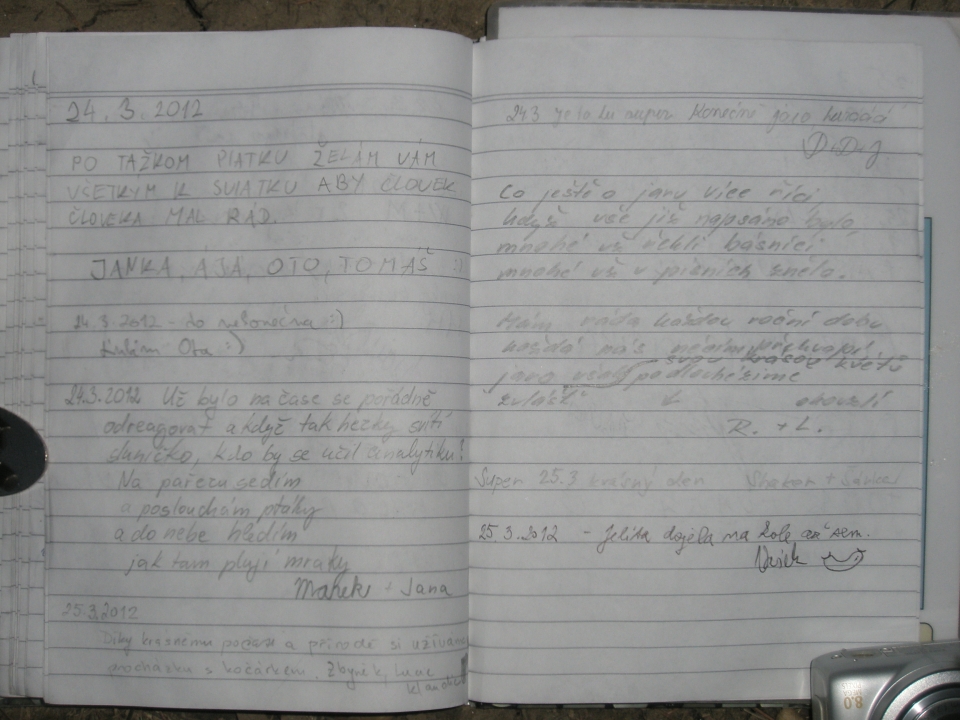 24.3.2012
PO TAŽKOM PIATKU ŽELÁM VÁM
VŠETKYM K SVIATKU ABY ČLOVEK
ČLOVEKA MAL RÁD.
JANKA, AJA, OTO, TOMAŠ
24.3.2012 - do nekonečna :)
Ota :)
24.3.2012 Už bylo na čase se pořádně
odreagovat a když tak hezky svítí
sluníčko, kdo by se učil analytiku!
Na pařezu sedím
a poslouchám ptáky
a do nebe hledím
jak tam plují mraky
Marek + Jana
25.3.2012
Díky krásnému počasí a přírodě si užíváme
procházku s kočárkem. Zbyněk,
24.3 je to tu super Konečně jaro
D.D.J
Co ještě o jaru více říci
když vše již napsáno bylo,
mnohé už řekli básníci
mnohé už v písních znělo.
Mám ráda každou roční dobu
každá nás něčím překvapí
jaro však po dlouhé zimě
svou krásou květů
zvlášť okouzlí
R. + L.
Super 25.3 krásný den
25.3.2012 - Jelita dojela na kole až sem.
Vašek
8.0